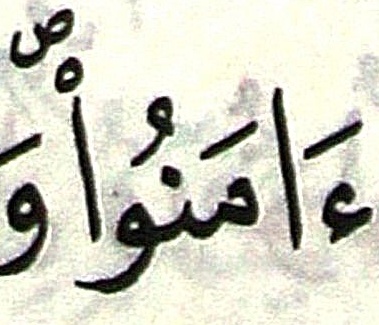 ءَامَنُوا۟ ۖ وَ